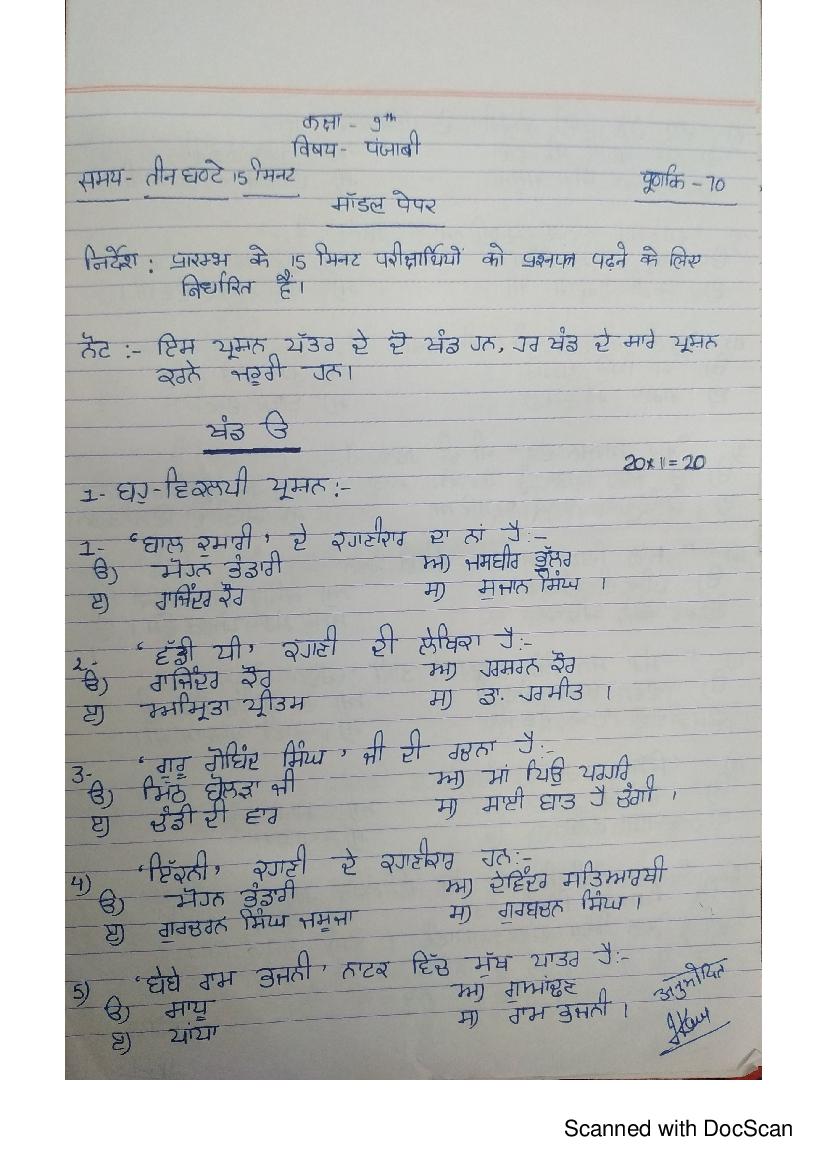 कक्षा - 9th
विषय- पंजाबी
समय- तीन घण्टे 15 मिनट पूर्णांक - 70
मॉडल पेपर
निर्देश : प्रारम्भ के 15 मिनट परीक्षार्थियों को प्रश्नपत्र पढ़ने के लिए
निर्धारित हैं।
ਨੋਟ :- ਇਸ ਪ੍ਰਸ਼ਨ ਪੱਤਰ ਦੇ ਦੋ ਖੰਡ ਹਨ, ਹਰ ਖੰਡ ਦੇ ਸਾਰੇ ਪ੍ਰਸ਼ਨ
ਕਰਨੇ ਜ਼ਰੂਰੀ ਹਨ।
ਖੰਡ ੳ
20x1=20
1- ਬਹੁ-ਵਿਕਲਪੀ ਪ੍ਰਸ਼ਨ :-
1- 'ਬਾਲ ਕੁਮਾਰੀ' ਦੇ ਕਹਾਣੀਕਾਰ ਦਾ ਨਾਂ ਹੈ :-
ੳ) ਮੋਹਨ ਭੰਡਾਰੀ ਅ) ਜਸਬੀਰ ਭੁੱਲਰ
ੲ) ਰਾਜਿੰਦਰ ਕੌਰ ਸ) ਸੁਜਾਨ ਸਿੰਘ ।
2- 'ਵੱਡੀ ਧੀ' ਕਹਾਣੀ ਦੀ ਲੇਖਿਕਾ ਹੈ :-
ੳ) ਰਾਜਿੰਦਰ ਕੌਰ ਅ) ਹਰਸਰਨ ਕੌਰ
ੲ) ਅਮਿਮ੍ਰਤਾ ਪ੍ਰੀਤਮ ਸ) ਡਾ. ਹਰਮੀਤ ।
3- 'ਗੁਰੂ ਗੋਬਿੰਦ ਸਿੰਘ' ਜੀ ਦੀ ਰਚਨਾ ਹੈ :-
ੳ) ਮਿੱਠ ਬੋਲੜਾ ਜੀ ਅ) ਮਾਂ ਪਿਉ
ੲ) ਚੰਡੀ ਦੀ ਵਾਰ ਸ) ਸਾਈ ਬਾਤ ਹੈ ਚੰਗੀ ।
4) 'ਇੱਕਨੀ' ਕਹਾਣੀ ਦੇ ਕਹਾਣੀਕਾਰ ਹਨ :-
ੳ) ਮੋਹਨ ਭੰਡਾਰੀ ਅ) ਦੇਵਿੰਦਰ ਸਤਿਆਰਥੀ
ੲ) ਗੁਰਚਰਨ ਸਿੰਘ ਜਸੂਜਾ ਸ) ਗੁਰਬਚਨ ਸਿੰਘ ।
5) 'ਬੇਬੇ ਰਾਮ ਭਜਨੀ' ਨਾਟਕ ਵਿੱਚ ਮੁੱਖ ਪਾਤਰ ਹੈ :-
ੳ) ਸਾਧੂ ਅ) ਗੁਆਂਢਣ
ੲ) ਪਾਂਧਾ ਸ) ਰਾਮ ਭਜਨੀ ।
अनुमोदित
Scanned with DocScan